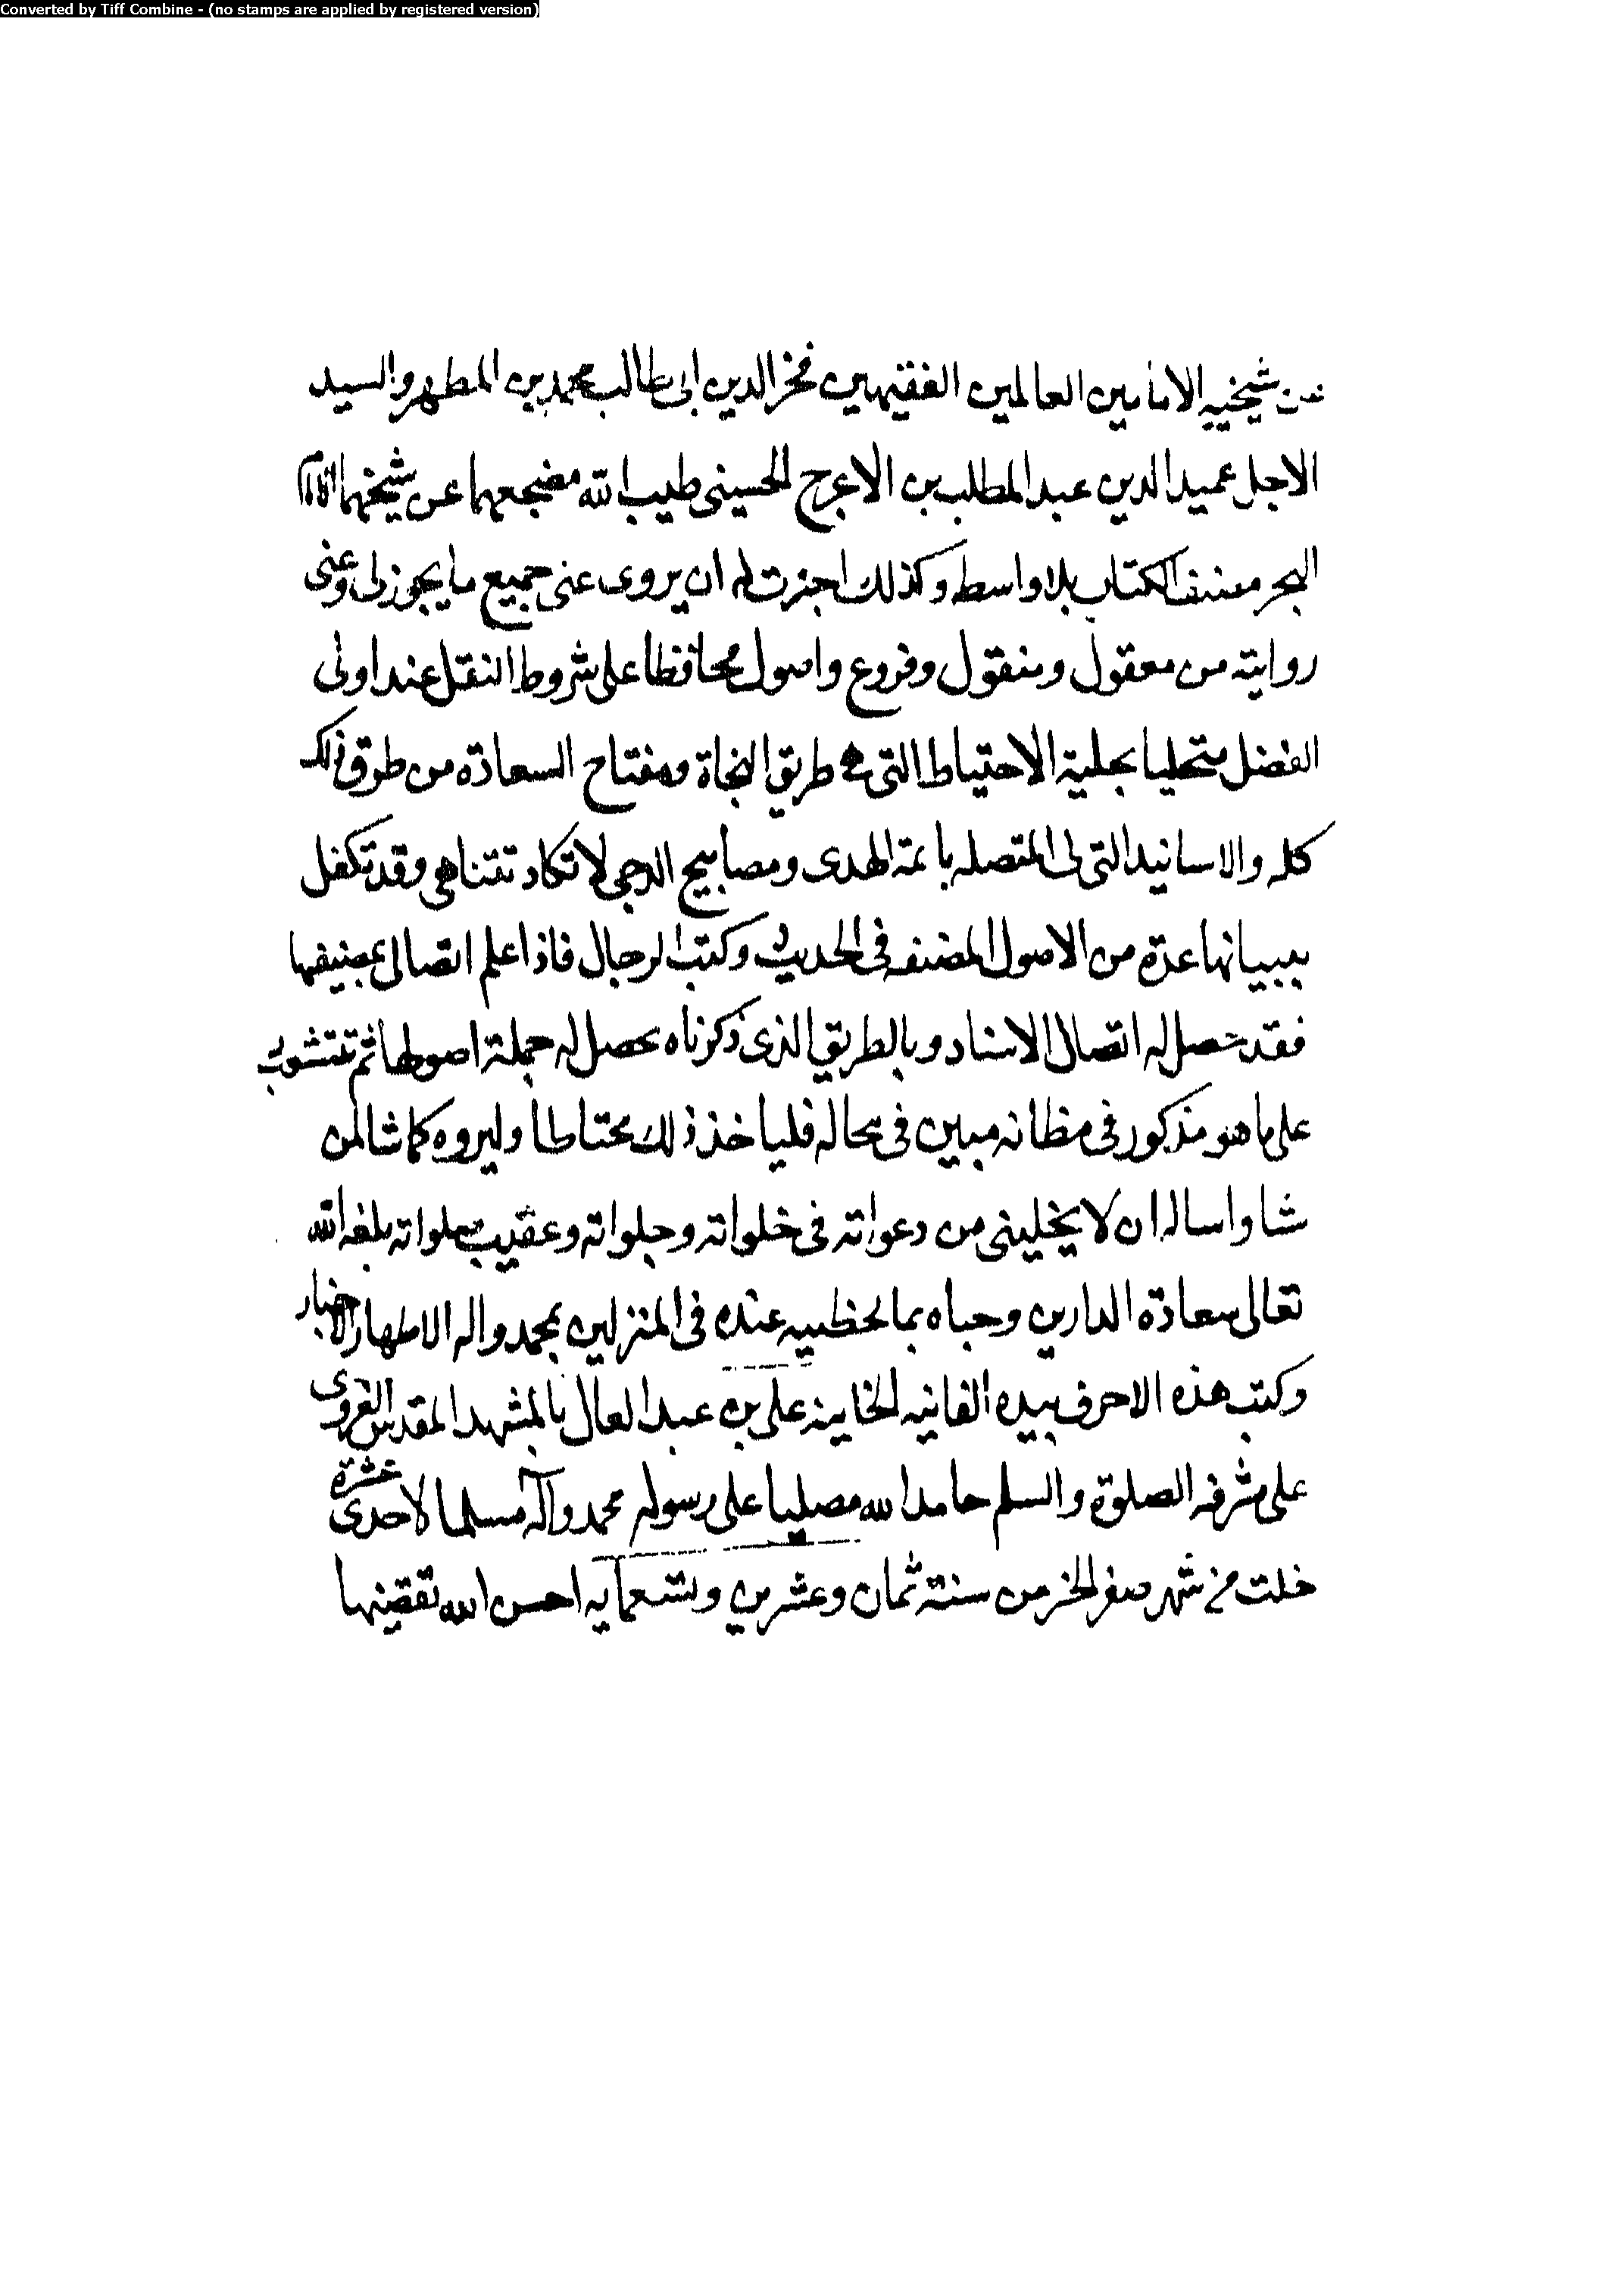 Converted by Tiff Combine - (no stamps are applied by registered version)
عن شيخيه الامامين العالمين الفقيهين فخر الدين ابى طالب محمد بن المطهر والسيد
الاجل عميد الدين عبد المطلب بن الاعرج الحسينى طيب الله مضجعهما عن شيخهما الامام
البحر مصنف الكتاب بلا واسطه وكذلك اجزت له ان يروى عنى جميع ما يجوز لى وعنى
روايته من معقول ومنقول وفروع واصول محافظا على شروط النقل عند اولى
الفضل متحليا بحلية الاحتياط التى هى طريق النجاة ومفتاح السعادة من طرق ذلك
كله والاسانيد التى لى المتصله بائمة الهدى ومصابيح الدجى لا تكاد تتناهى وقد تكفل
ببيانها عدة من الاصول المصنفه فى الحديث وكتب الرجال فاذا علم اتصالى بمصنيفها
فقد حصل له اتصال الاسناد وبالطريق الذى ذكرناه يحصل له جملة اصولها ثم
على ما هو مذكور فى مظانه مبين فى محاله فلياخذ ذلك محتاطا وليروه كما شا لمن
شا واساله ان لا يخلينى من دعواته فى خلواته وجلواته وعقيب صلواته بلغه الله
تعالى سعادة الدارين وحباه بما يحظيه عنده فى المنزلين بمحمد واله الاطهار الاخيار
وكتب هذه الاحرف بيده الفانيه الجانيه على بن عبد العال بالمشهد المقدس الغروى
على مشرفه الصلوة والسلم حامدا لله مصليا على رسوله محمد وآله مسلما لاحدى عشرة
خلت من شهر صفر الخر من سنة ثمان وعشرين وتسعمايه احسن الله تقضيها